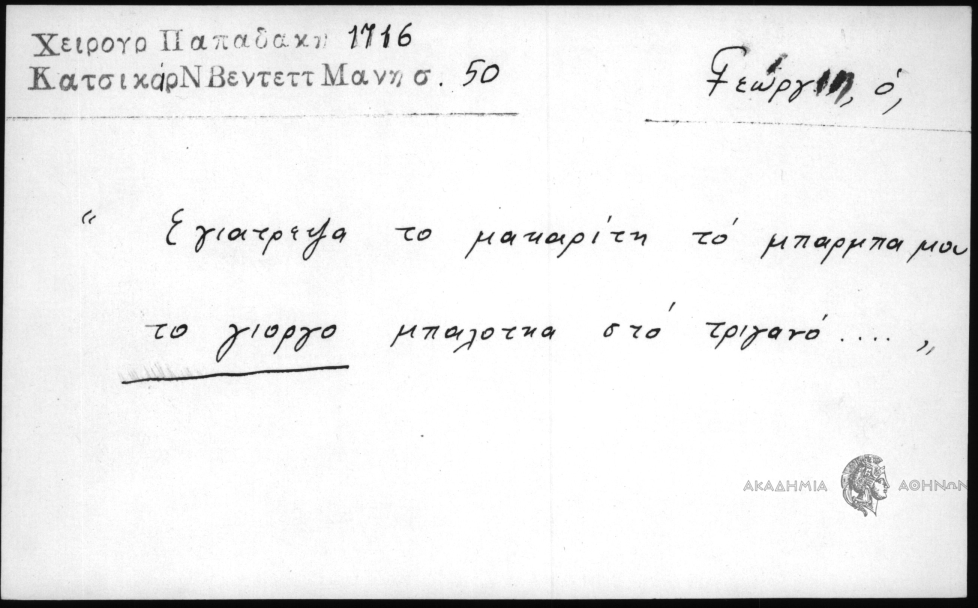 Χειρογρ Παπαδακη 1716
ΚατσικάρΝ Βεντεττ Μανησ. 50
Γεώργιη, ὁ,
“ Εγιατρεψα το μακαρίτη τό μπαρμπα μου
το γιοργο μπαλοτκα στό τριγανό .... „
ΑΚΑΔΗΜΙΑ ΑΘΗΝΩΝ